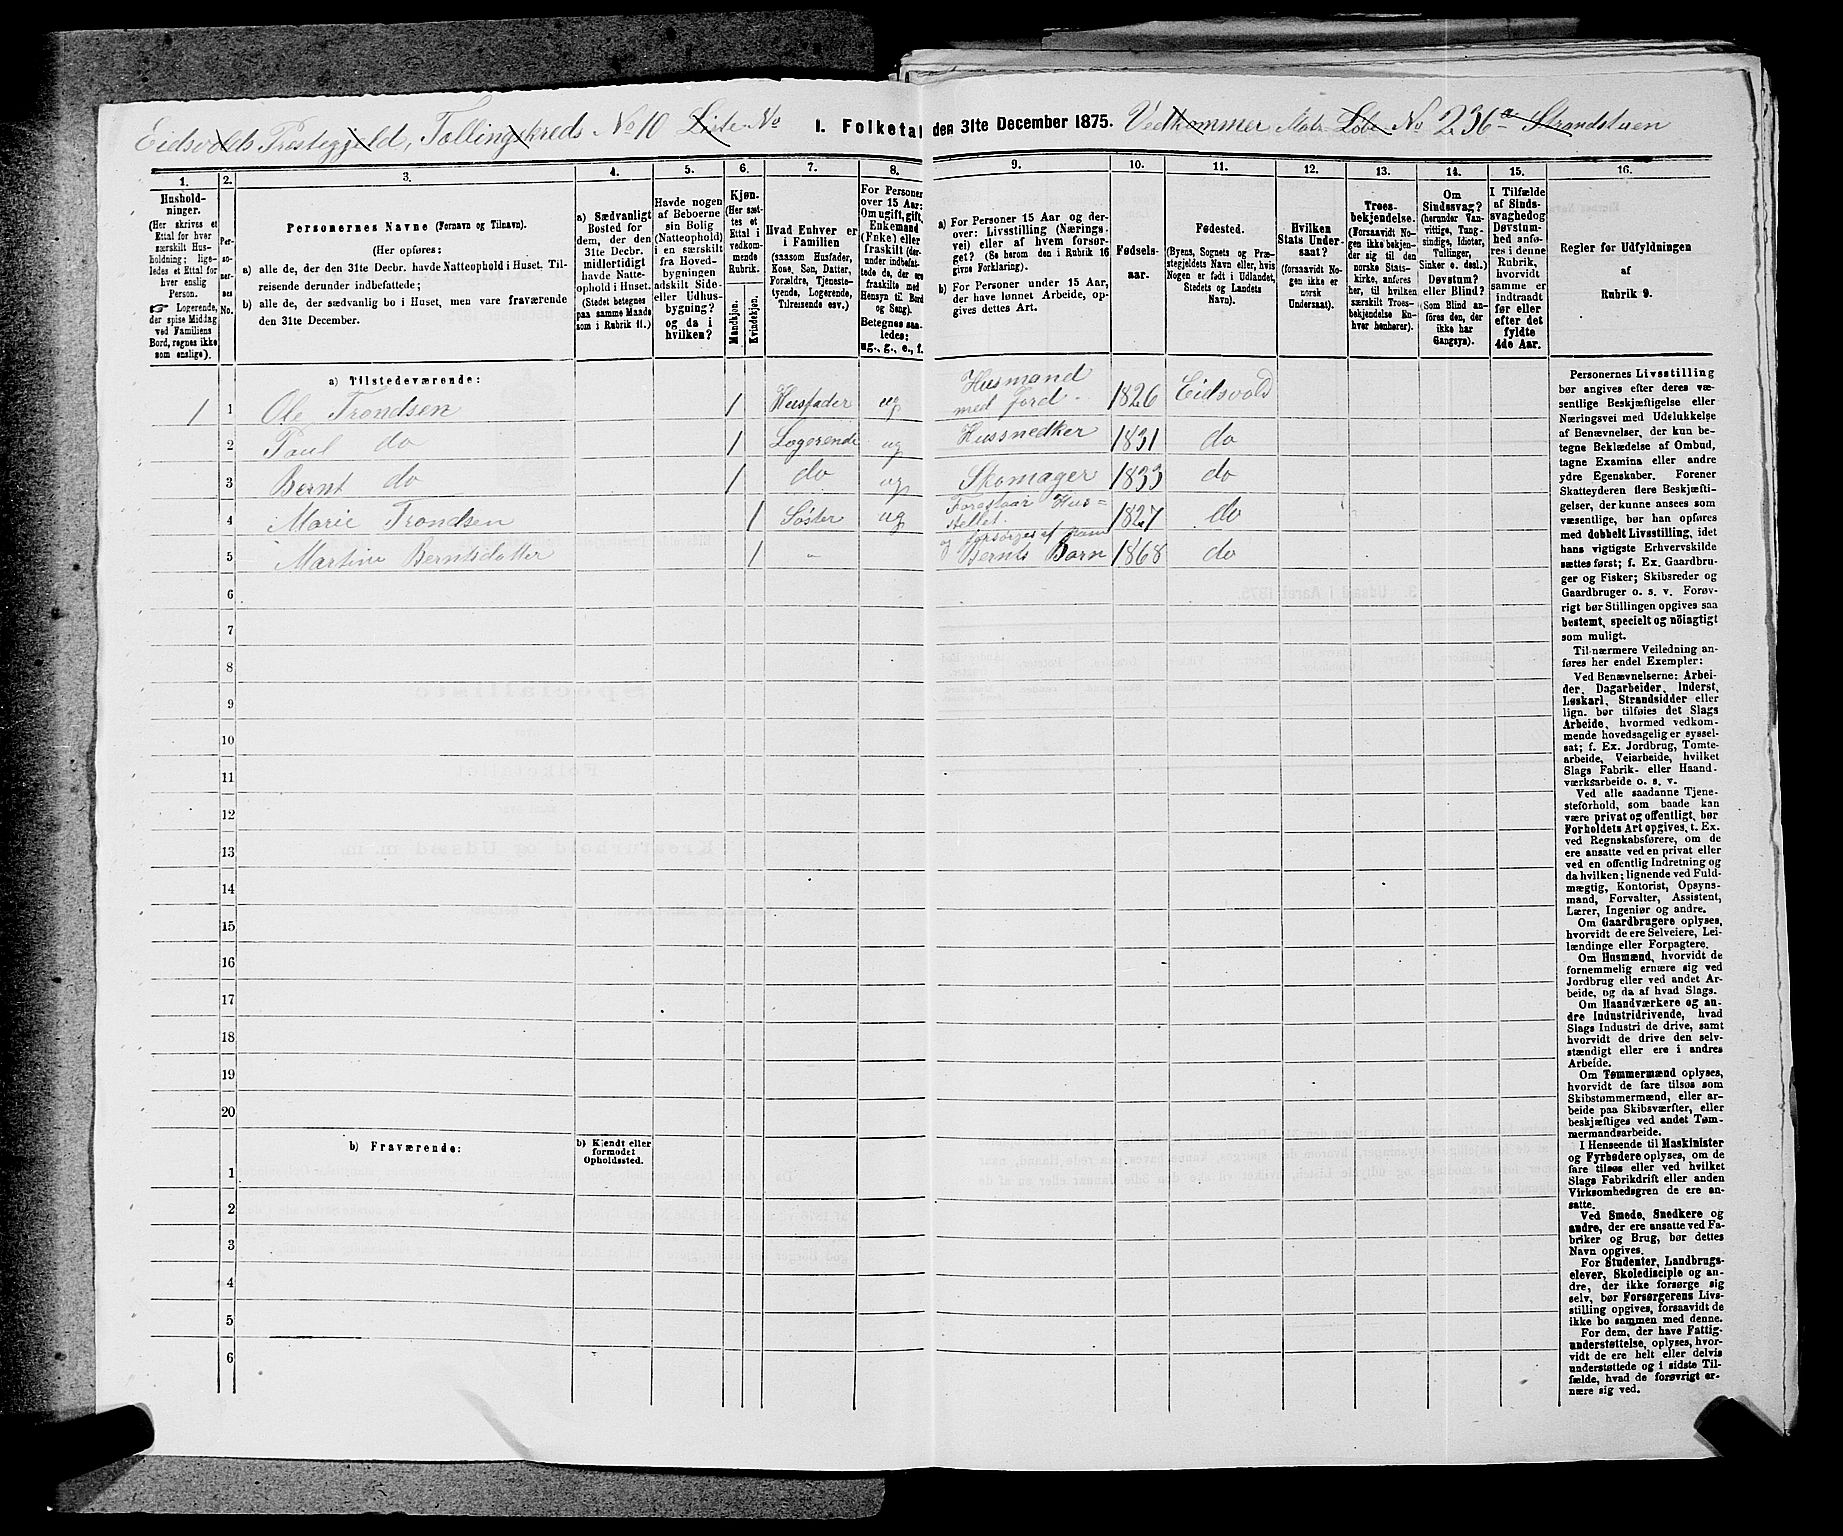 Eidsvolds Præstegjeld, Tællingskreds No 10 Liste No
I. Folketal den 31te December 1875. Vedkommer Matr. Løbe No 236 a Strandstuen
1.
Husholdninger.
(Her skrives et
Ettal for hver
særskilt Husholdning;
ligeledes et Ettal for
hver enslig
Person.
☞ Logerende,
der spise Middag
ved Familiens
Bord, regnes ikke
som enslige).
2.
Personernes
No.
3.
Personernes Navne (Fornavn og Tilnavn).
(Her opføres:
a) alle de, der den 31te Decbr. havde Natteophold i Huset. Tilreisende
derunder indbefattede;
b) alle de, der sædvanlig bo i Huset, men vare fraværende
den 31te December.
4.
a) Sædvanligt
Bosted for
dem, der den
31te Decbr.
midlertidigt
havde Natteophold
i Huset.
(Stedet betegnes
paa samme Maade
som i Rubrik 11.)
5.
Havde nogen
af Beboerne
sin Bolig
(Natteophold)
i en særskilt
fra Hovedbygningen
adskilt Side-
eller Udhusbygning?
og da i
hvilken?
6.
Kjøn.
(Her sættes
et
Ettal i
vedkommende
Rubrik.
Mandkjøn.
Kvindekjøn.
7.
Hvad Enhver er
i Familien
(saasom Husfader,
Kone, Søn, Datter,
Forældre, Tjenestetyende,
Logerende,
Tilreisende osv.)
8.
For Personer
over 15 Aar:
Om ugift, gift,
Enkemand
(Enke) eller
fraskilt (derunder
indbefattede
de, der ere
fraskilte med
Hensyn til Bord
og Seng).
Betegnes saaledes:
ug., g., e., f.
9.
a) For Personer 15 Aar og derover:
Livsstilling (Næringsvei)
eller af hvem forsørget?
(Se herom den i Rubrik 16
givne Forklaring).
b) For Personer under 15 Aar,
der have lønnet Arbeide, opgives
dettes Art.
10.
Fødselsaar.
11.
Fødested.
(Byens, Sognets og Præstegjeldets
Navn eller, hvis
Nogen er født i Udlandet,
Stedets og Landets
Navn).
12.
Hvilken
Stats Undersaat?
(forsaavidt Nogen
ikke er
norsk
Undersaat).
13.
Troesbekjendelse.
(Forsaavidt Nogen
ikke bekjender
sig til den
norske Statskirke,
anføres
her, til hvilken
særskilt Troesbekjendelse
Enhver
henhører).
14.
Om
Sindssvag?
(herunder Vanvittige,
Tungsindige,
Idioter,
Tullinger,
Sinker o. desl.)
Døvstum?
eller Blind?
(Som Blind anføres
den, der
ikke har
Gangsyn).
15.
I Tilfælde
af Sindssvaghed
og
Døvstumhed
anføres
i denne
Rubrik,
hvorvidt
samme er
indtraadt
før eller
efter det
fyldte
4de Aar.
16.
Regler for Udfyldningen
af
Rubrik 9.
a) Tilstedeværende:
1 1 Ole Trondsen 1 Husfader ug Husmand med Jord. 1826 Eidsvold
2 Paul do 1 Logerende ug Hussnedker 1831 do
3 Bernt do 1 do ug Skomager 1833 do
4 Marie Trondsen 1 Søster ug Forestaar Husstellet. 1827 do
5 Martine Berntsdatter 1 " og forsørges af Faren Bernts Barn 1868 do
6
7
8
9
10
11
12
13
14
15
16
17
18
19
20
b) Fraværende:
b) Kjendt eller
formodet
Opholdssted.
1
2
3
4
5
6
Personernes Livsstilling
bør angives efter deres væsentlige
Beskjæftigelse eller
Næringsvei med Udelukkelse
af Benævnelser, der kun betegne
Beklædelse af Ombud,
tagne Examina eller andre
ydre Egenskaber. Forener
Skatteyderen flere Beskjæftigelser,
der kunne ansees som
væsentlige, bør han opføres
med dobbelt Livsstilling, idet
hans vigtigste Erhvervskilde
sættes først; f. Ex. Gaardbruger
og Fisker; Skibsreder og
Gaardbruger o. s. v. Forøvrigt
bør Stillingen opgives saa
bestemt, specielt og nöiagtigt
som muligt.
Til nærmere Veiledning anføres
her endel Exempler:
Ved Benævnelserne: Arbeider,
Dagarbeider, Inderst,
Løskarl, Strandsidder eller
lign. bør tilføies det Slags
Arbeide, hvormed vedkommende
hovedsagelig er sysselsat;
f. Ex. Jordbrug, Tomtearbeide,
Veiarbeide, hvilket
Slags Fabrik- eller Haandværksarbeide
o. s. v.
Ved alle saadanne Tjenesteforhold,
som baade kan
være privat og offentligt, bør
Forholdets Art opgives, t. Ex.
ved Regnskabsførere, om de
ere ansatte ved en privat eller
ved en offentlig Indretning og
da hvilken; lignende ved Fuldmægtig,
Kontorist, Opsynsmand,
Forvalter, Assistent,
Lærer, Ingeniør og andre.
Om Gaardbrugere oplyses,
hvorvidt de ere Selveiere, Leilændinge
eller Forpagtere.
Om Husmænd, hvorvidt de
fornemmelig ernære sig ved
Jordbrug eller ved andet Arbeide,
og da af hvad Slags.
Om Haandværkere og andre
Industridrivende, hvad
Slags Industri de drive, samt
hvorvidt de drive den selvstændigt
eller ere i andres
Arbeide.
Om Tømmermænd oplyses,
hvorvidt de fare tilsøs som
Skibstømmermænd, eller arbeide
paa Skibsværfter, eller
beskjæftiges ved andet Tømmermandsarbeide.
I Henseende til Maskinister
og Fyrbødere oplyses, om de
fare tilsøs eller ved hvilket
Slags Fabrikdrift eller anden
Virksomhedsgren de ere ansatte.
Ved Smede, Snedkere og
andre, der ere ansatte ved Fabriker
og Brug, bør dettes
Navn opgives.
For Studenter, Landbrugselever,
Skoledisciple og andre,
der ikke forsørge sig
selv, bør Forsørgerens Livsstilling
opgives, forsaavidt de
ikke bo sammen med denne.
For dem, der have Fattigunderstøttelse,
oplyses, hvorvidt
de ere helt eller delvis
understøttede og i sidste Tilfælde,
hvad de forøvrigt ernære
sig ved.